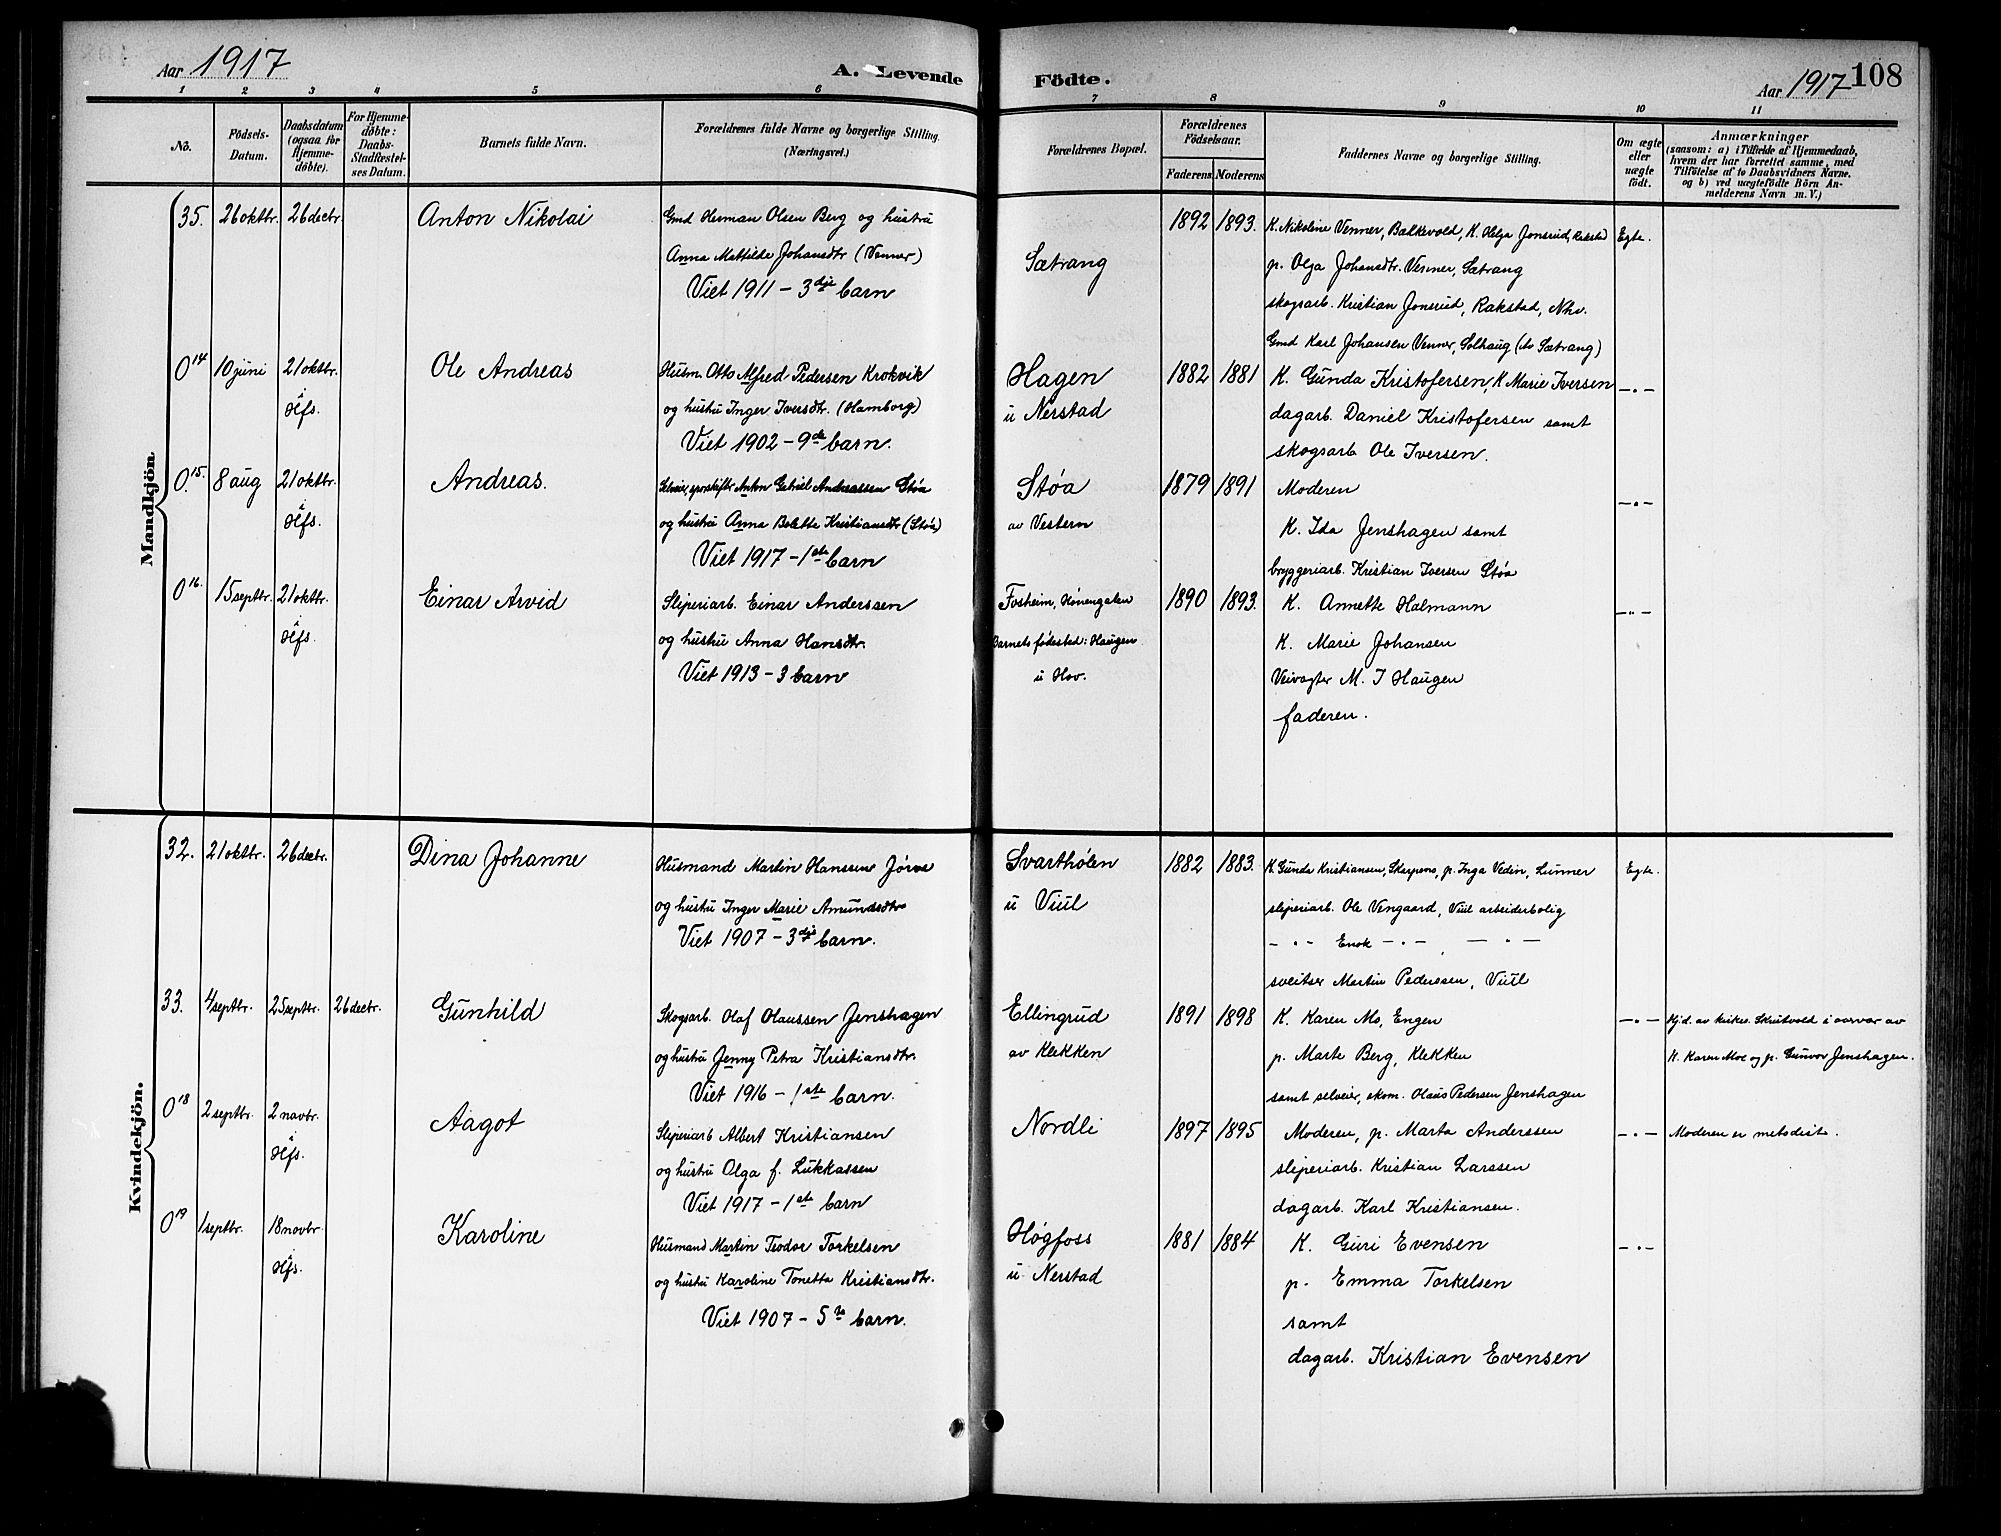 Aar 1917
A. Levende
Födte.
Aar 1917
108
1 2 3 4 5 6 7 8 9 10 11
No.
Födsels-
Datum.
Daabsdatum
(ogsaa for
Hjemme-
döbte).
For Hjemme-
döbte:
Daabs-
Stadfæstel-
ses Datum.
Barnets fulde Navn.
Forældrenes fulde Navne og borgerlige Stilling.
(Næringsvei.)
Forældrenes Bopæl.
Forældrenes
Födselsaar.
Faderens Moderens
Faddernes Navne og borgerlige Stilling.
Om ægte
eller
uægte
födt.
Anmærkninger
(saasom: a) i Tilfælde af Hjemmedaab,
hvem der har forrettet samme, med
Tilföielse af to Daabsvidners Navne.
og b) ved uægtefödte Börn An-
melderens Navn m. V.)
Mandkjön.
35. 26 oktbr. 26 decbr.
Anton Nikolai
Gmd Herman Olsen Berg og hustru
Anna Mathilde Johansdtr (Venner)
Viet 1911 - 3dje barn
Sætrang
1892 1893.
K. Nikoline Venner, Bælkevold, K. Helga Jonsrud, Rakstad
p. Olga Johansdtr. Venner, Sætrang
skogsarb. Kristian Jonsrud, Rakstad, Nhv.
Gmd Karl Johansen Venner, Solhaug (av Sætrang)
Egte.
O 14 10 juni 21 oktbr.
i Hfs.
Ole Andreas
Husm. Otto Alfred Pedersen Krokvik
og hustru Inger Iversdtr. (Hamborg)
Viet 1902 - 9de barn.
Hagen
u Nerstad
1882 1881
K. Gunda Kristofersen, K Marie Iversen
dagarb. Daniel Kristofersen samt
skogsarb Ole Iversen.
- " -
O. 15. 8 aug 21 oktbr.
i Hfs.
Andreas.
Selveier, sporskifter Anton Gabriel Andreassen Støa
og hustru Anna Bolette Kristiansdtr (Støa)
Viet 1917 - 1ste barn
Støa
av Vestern
1879 1891
Moderen
K. Ida Jenshagen samt
bryggeriarb. Kristian Iversen Støa
- " -
O 16. 15 septbr. 21 oktbr.
i Hfs.
Einar Arvid
Sliperiarb. Einar Anderssen
og hustru Anna Hansdtr.
Viet 1913 - 3 barn
Fosheim, Hønengaten
Barnets fødested: Haugen
u Hov.
1890 1893.
K. Annette Halmann
K. Marie Johansen
Veivogter M. J Haugen
faderen.
- " -
Kvindekjön.
32. 21 oktbr. 26 decbr.
Dina Johanne
Husmand Martin Hanssen Jørve
og hustru Inger Marie Amundsdtr
Viet 1907 - 3dje barn.
Svarthølen
u Viul
1882 1883.
K. Gunda Kristiansen, Skarpens, p. Inga Vedin, Lunner
sliperiarb. Ole Vengaard, Viul arbeiderbolig
- " - Enok - " - - " -
sveitser Martin Pedersen, Viul
Egte.
33. 4 septbr. 25 septbr. 26 decbr.
Gunhild
Skogsarb. Olaf Olaussen Jenshagen
og hustru Jenny Petra Kristiansdtr.
Viet 1916 - 1ste barn.
Ellingrud
av Klekken
1891 1898
K. Karen Mo, Engen
p. Marte Berg, Klekken
samt selveier, skom. Olaus Pedersen Jenshagen
- " -
Hjd. av kirkes. Skrutvold i nærvær av
K. Karen Moe og p. Gunvor Jenshagen.
O 18 2 septbr. 2 novbr.
i Hfs.
Aagot
Sliperiarb Albert Kristiansen
og hustru Olga f. Lukkassen
Viet 1917 - 1ste barn
Nordli
1897 1895
Moderen, p. Marta Anderssen
sliperiarb. Kristian Larssen
dagarb. Karl Kristiansen.
- " -
Moderen er metodist.
O 19 1 septbr. 18 novbr.
i Hfs.
Karoline
Husmand Martin Teodor Torkelsen
og hustru Karoline Tonetta Kristiansdtr.
Viet 1907 - 5te barn.
Høgfoss
u. Nerstad
1881 1884
K. Guri Evensen
p. Emma Torkelsen
samt
dagarb. Kristian Evensen
- " -